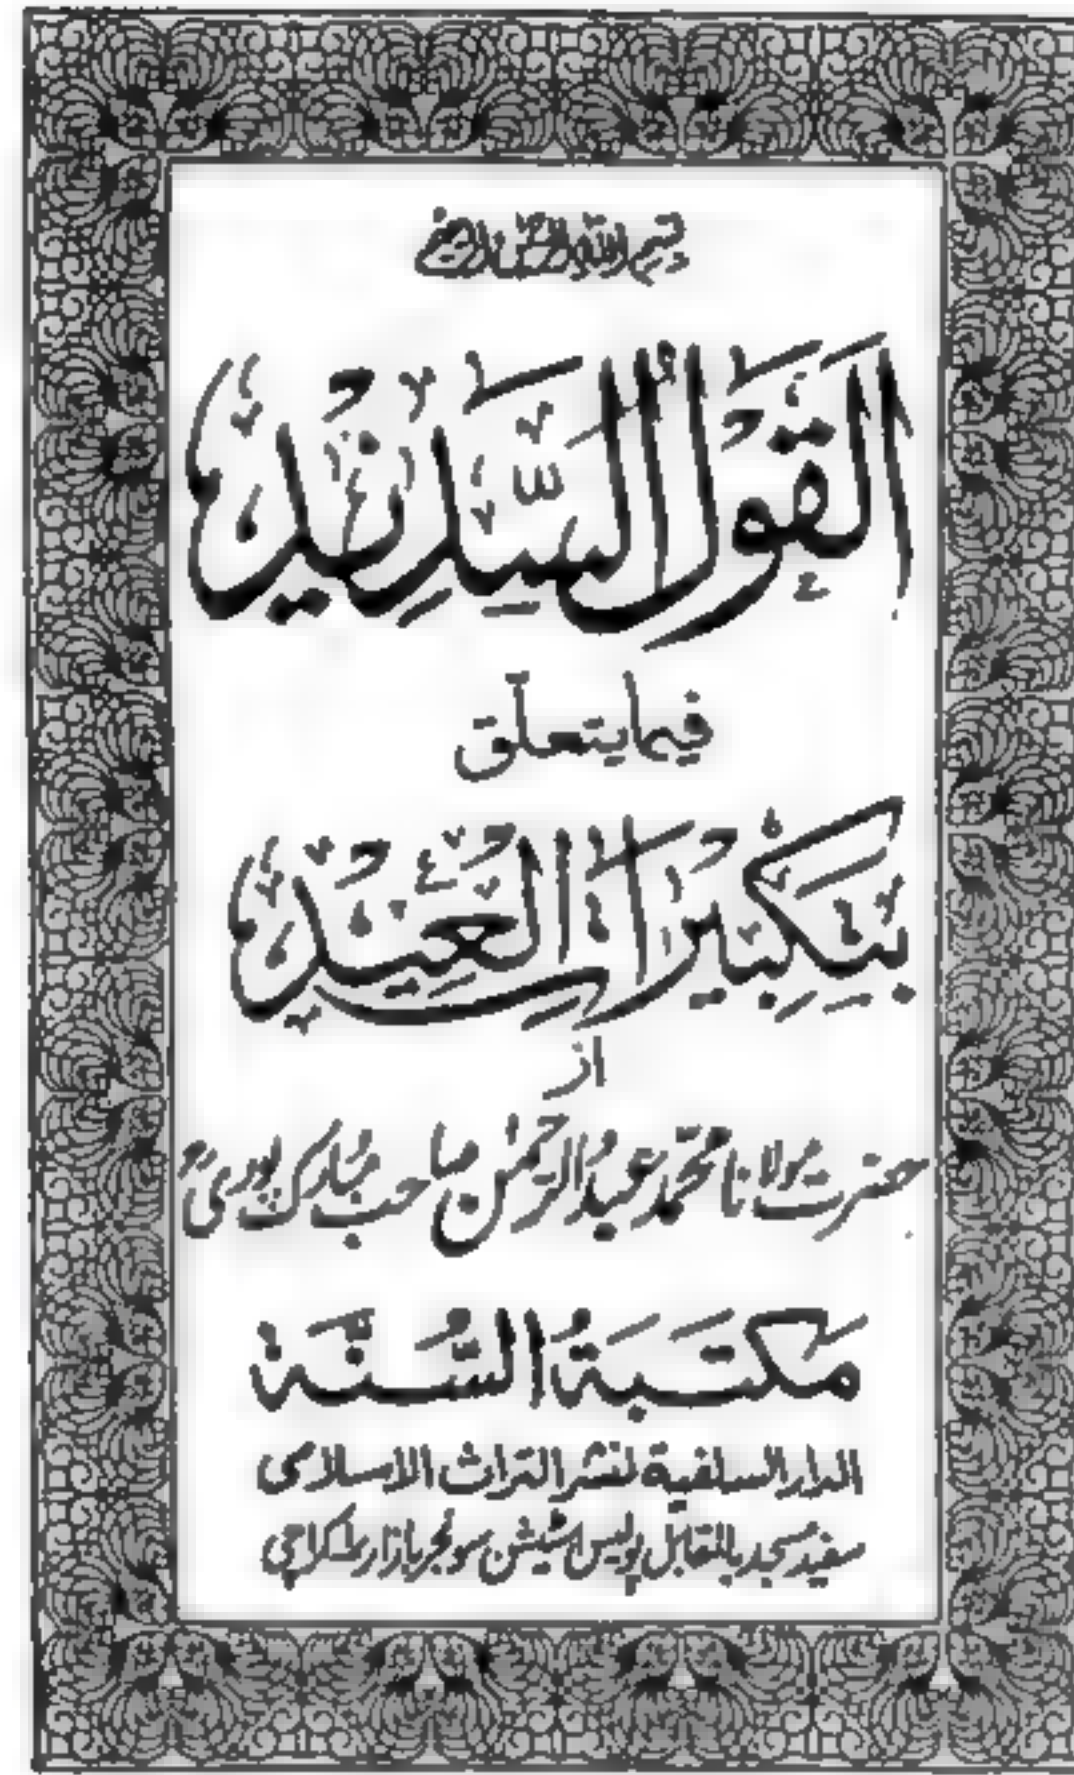 بسم الله الرحمن الرحیم
القَولُ السَّدِيد
فیما یتعلّق
بتکبیرات العید
از
حضرت مولانا محمد عبد الرحمٰن صاحب مبارک پوریؒ
مَکتَبَةُ السُّنَّة
الدار السلفیة لنشر التراث الاسلامی
سفید مسجد بالمقابل پولیس اسٹیشن سولجر بازار ۱ کراچی